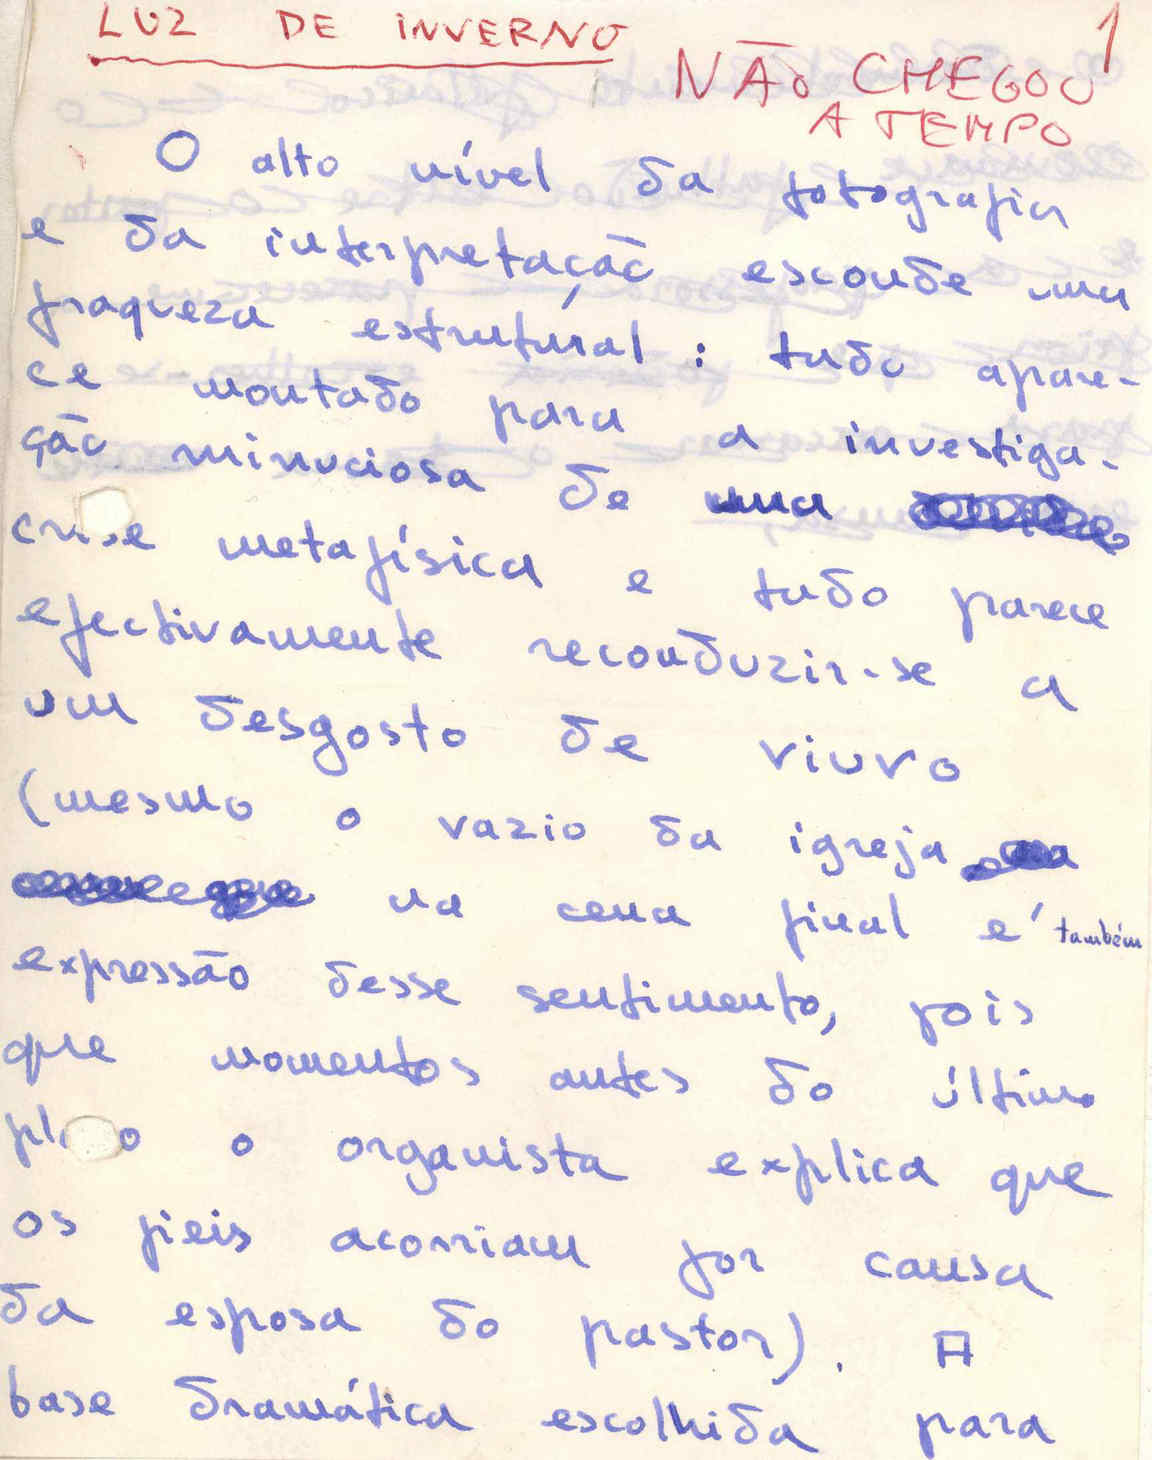 LUZ DE INVERNO
1
NÃO CHEGOU
A TEMPO
O alto nível da fotografia
e da interpretação esconde uma
fraqueza estrutural: tudo apare-
ce montado para a investiga-
ção minuciosa de uma
crise metafísica e tudo parece
efectivamente reconduzir-se a
um desgosto de viuvo
(mesmo o vazio da igreja
na cena final é também
expressão desse sentimento, pois
que momentos antes do último
plano o organista explica que
os fieis acorriam por causa
da esposa do pastor). A
base dramática escolhida para